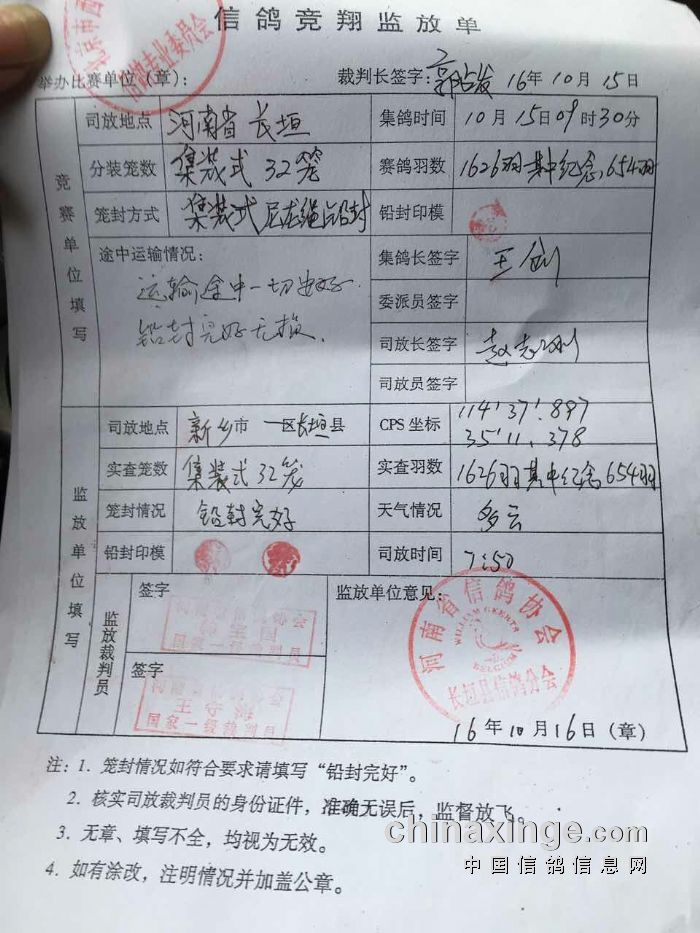 信鸽竞翔监放单
举办比赛单位（章）： 裁判长签字： 16年10月15日
竞赛单位填写
司放地点 河南省 长垣 集鸽时间 10月15日09时30分
分装笼数 集装式 32笼 赛鸽羽数 1626羽其中纪念654羽
笼封方式 集装式尼龙绳铅封 铅封印模
途中运输情况： 集鸽长签字 王剑
运输途中一切良好 委派员签字
铅封完好无损. 司放长签字 赵志刚
司放员签字
监放单位填写
司放地点 新乡市 一区长垣县 CPS 坐标 114°37'.897
35°11.378
实查笼数 集装式32笼 实查羽数 1626羽其中纪念654羽
笼封情况 铅封完好 天气情况 多云
铅封印模 司放时间 7:50
监放裁判员 签字 监放单位意见：
国家一级裁判员
签字
国家一级裁判员
河南省信鸽协会
BELGIUM
长垣县信鸽分会
16年10月16日（章）
注：1. 笼封情况如符合要求请填写“铅封完好”。
2. 核实司放裁判员的身份证件，准确无误后，监督放飞。
3. 无章、填写不全，均视为无效。
4. 如有涂改，注明情况并加盖公章。
chinaxinge.com
中国信鸽信息网